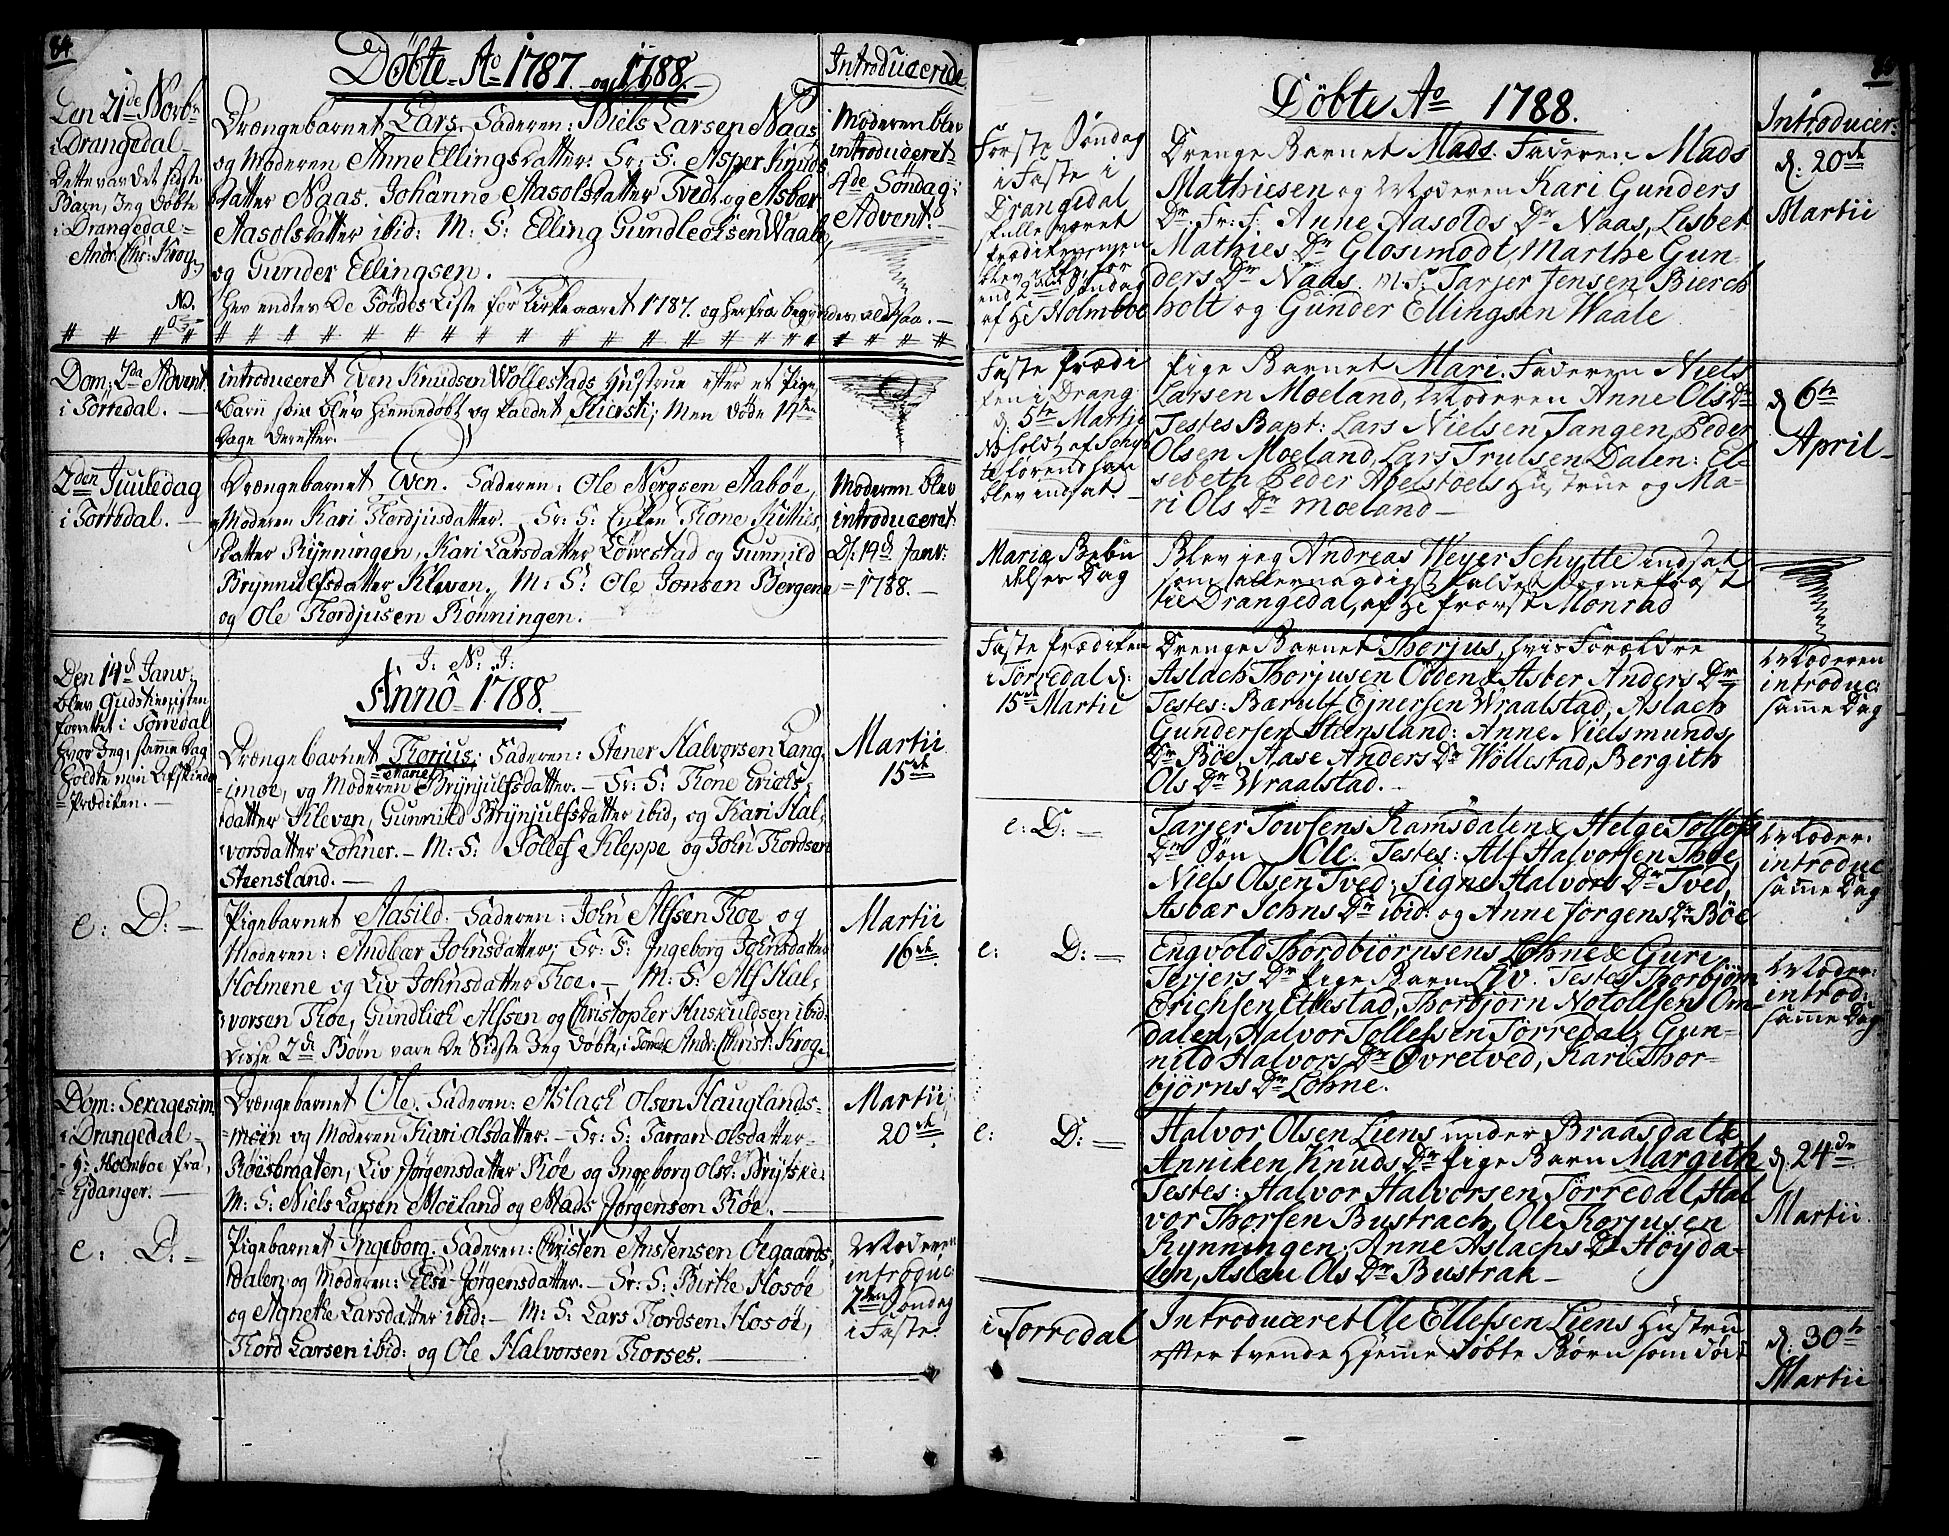 84
Döbte Ao 1787 og 1788.
Introducerede
Den 21de Novbr
i Drangedal
Dette var det sidste
Barn, Jeg Døbte
i Drangedal
Andr: Chr: Krog
Drængebarnet Lars. Faderen: Niels Larsen Naas,
og Moderen Anne Ellingsdatter: Fr: F: Asper Knuds
datter Naas. Johanne Aasolsdatter Tvedt og Asbær
Aasolsdatter ibid: M: F: Elling Gundleichsen Waale,
og Gunder Ellingsen.
Moderen blev
introduceret
4de Søndag i
Advent.
No.
Her endtes De Føddes Liste for Kirkeaaret 1787. og herfra begyndes altsaa.
Dom: 2da Advent
i Törredal.
introduceret Even Knudsen Wollestads Hustrue efter et Pige
Barn som blev hiemedøbt og kaldet Kiersti; Men døde
Dage derefter.
2den Juuledag
i Torredal.
Drængebarnet Even. Faderen: Ole Nergsen Aabøe,
Moderen Kari Tordjusdatter. Fr: F: Enken Tone Kittils
datter Rynningen, Kari Larsdatter Løvestad og Gunnild
Brynnulfsdatter Kleven, M: F: Ole Jonsen Bergene
og Ole Tordjusen Rønningen.
Moderen blev
introduceret
D: 19de Janv:
1788.
J: N: J:
Anno 1788.
Den 14de Janv:
blev Gudstienisten
forrettet i Torredal
hvor Jeg, samme Dag
holdte min Afskieds
Prædiken.
Drængebarnet Torjus. Faderen: Stener Halvorsen Lang
moe, og Moderen Marie Brynjulfsdatter. Fr: F: Tone Erichs
datter Kleven, Gunnild Brynjulfsdatter ibid, og Kari Hal
vorsdatter Lohner. M: F: Tollef Kleppe og John Tordsen
Steensland.
Martii
15de
e: D:
Pigebarnet Aasild. Faderen: John Alfsen Toe og
Moderen: Andbær Johnsdatter; Fr: F: Ingeborg Johnsdatter
Holmene og Liv Johnsdatter Toe. M: F: Alf Hal
vorsen Toe, Gundlich Alfsen og Christopher Huskuldsen ibid:
Disse 2de Børn vare De Sidste Jeg Døbte, i Torredal, Andr: Christ: Krog
Martii
16de
Dom: Sexagesim
i Drangedal
Hr. Holmboe fra
Ejdanger.
Drængebarnet Ole. Faderen: Aslach Olsen Hauglands
moen og Moderen Kari Olsdatter. Fr: F: Tarran Olsdatter
Røesbraaten, Liv Jørgensdatter Røe, og Ingeborg Olsdr Bryske.
M: F: Niels Larsen Moeland og Mads Jørgensen Røe.
Martii
20de
e: D:
Pigebarnet Ingeborg. Faderen: Christen Anstensen Øegaards
dalen og Moderen: Else Jørgensdatter. Fr: F: Birthe Hosøe
og Agnethe Larsdatter ibid: M: F: Lars Tordsen Hosøe,
Tord Larsen ibid: og Ole Halvorsen Torses.
Moderen
introduc:
2den Søndag
i Faste.
Döbte Ao 1788.
Introducer:
Første Søndag
i Faste i
Drangedal
skulle været
Prædiken men
blev ikke for
end 2den Søndag
af Hr Holmboe
Drenge Barnet Mads. Faderen Mads
Mathiesen og Moderen Kari Gunders
Dr. Fr: F. Anne Aasolds Dr Naas, Lisbet
Mathies Dr Glosimodt, Marthe Gun
ders Dr Naas. M: F: Tarjer Jensen Bierch
holt og Gunder Ellingsen Waale
d: 20de
Martii
Faste Prædi
ken i Drang
d. 5te Martii
Nb holdt af Schyt
te førend han
blev indsat.
Pige Barnet Mari. Faderen Niels
Larsen Moeland, Moderen Anne Ols Dr
Testes Bapt: Lars Nielsen Tangen, Peder
Olsen Moeland, Lars Trulsen Dalen: El
sebeth Peder Abelstoels Hustrue og Ma
ri Ols Dr Moeland
d 6te
April
Mariæ Bebu
delses Dag
Blev jeg Andreas Weyer Schytte indsat
som allernaadigst kaldet Sognepræst
til Drangedal, af Hr Provst Monrad
Faste Prædiken
i Törredal d:
15de Martii
Drenge Barnet Thorjus, hvis Forældre
Aslach Thorjusen Odden & Asber Anders Dr
Testes: Barulf Ejnersen Wraalstad, Aslach
Gundersen Steensland: Anne Nielsmunds
Dr Böe, Aase Anders Dr Wöllestad, Bergith
Ols Dr Wraalstad.
Moderen
introduc:
samme Dag
e: D:
Tarjer Towsens Ramsdalen & Helge Tollefs
Dr Søn Ole. Testes: Alf Halvorsen Thoe,
Niels Olsen Tved; Signe Halvors Dr Tved,
Asbær Johns Dr ibid: og Anne Jörgens Dr Böe
Moder:
introduc
samme Dag
e: D:
Engvold Thordbiörnsens Lohne & Guri
Terjers Dr Pige Barn Liv. Testes Thorbjørn
Erichsen Ettestad, Thorbjørn Notolfsen Om
dalen, Halvor Tollefsen Törredal; Gun
nild Halvors Dr Øvretved, Kari Thor
björns Dr Lohne.
Moder:
introd:
samme Dag
e: D:
Halvor Olsen Liens under Braasdal &
Anniken Knuds Dr Pige Barn Margith
Testes: Halvor Halvorsen Törredal, Hal
vor Thorsen Bustrach, Ole Thorjusen
Rynningen: Anne Aslachs Dr Höyda
len, Aslau Ols Dr Bustrak
d 24de
Martii
i Torredal
Introduceret Ole Ellefsen Liens Hustru
efter tvende Hjemme Döbte Börn som döde
d: 30te
Martii